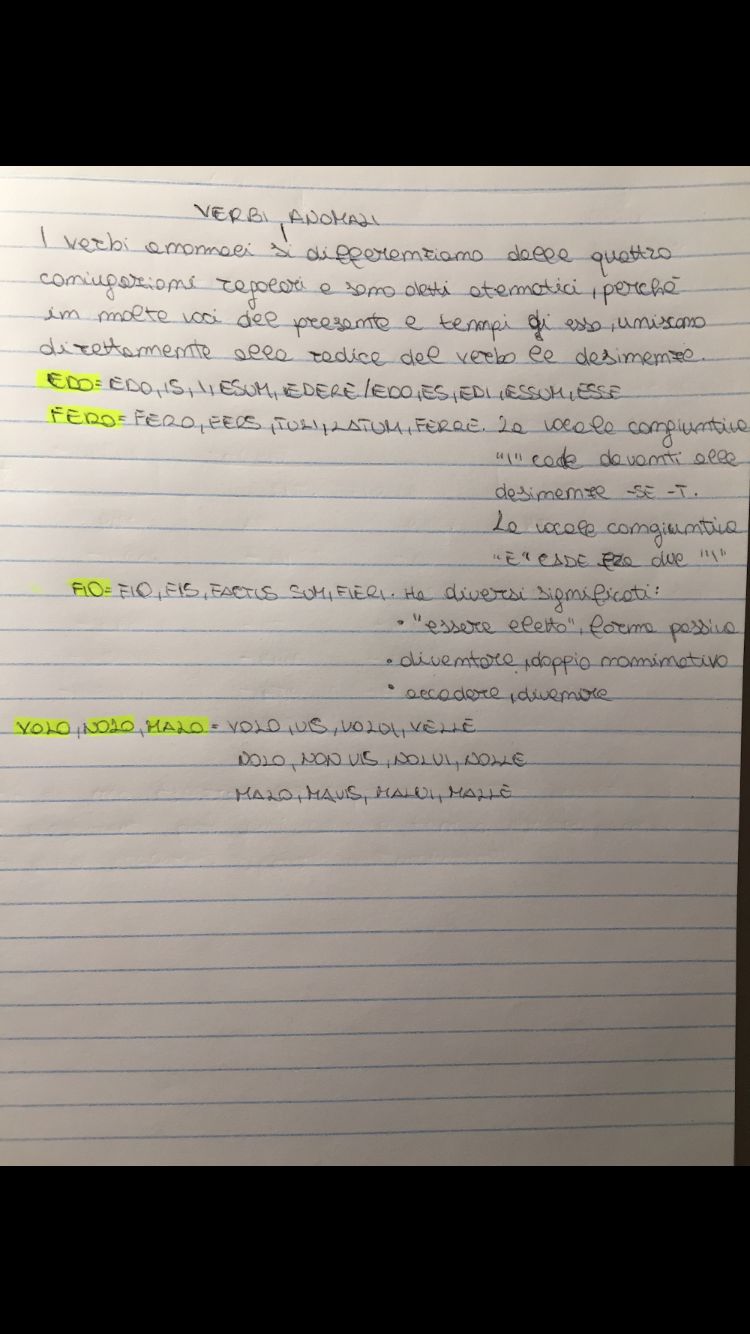 VERBI ANOMALI
I verbi anomali si differenziano dalle quattro
coniugazioni regolari e sono detti atematici, perché
in molte voci del presente e tempi di esso, uniscono
direttamente alla radice del verbo le desinenze.
EDO= EDO, IS, I, ESUM, EDERE/EDO, ES, EDI, ESSUM, ESSE
FERO= FERO, FERS, TULI, LATUM, FERRE. La vocale congiuntiva
"I" cade davanti alle
desinenze -SE -T.
La vocale congiuntiva
"E" CADE FRA due "I"
FIO= FIO, FIS, FACTUS SUM, FIERI. Ha diversi significati:
• "essere eletto", forma passiva
• diventare, doppio nominativo
• accadere, divenire
VOLO, NOLO, MALO= VOLO, VIS, VOLUI, VELLE
NOLO, NON VIS, NOLUI, NOLLE
MALO, MAVIS, MALUI, MALLE